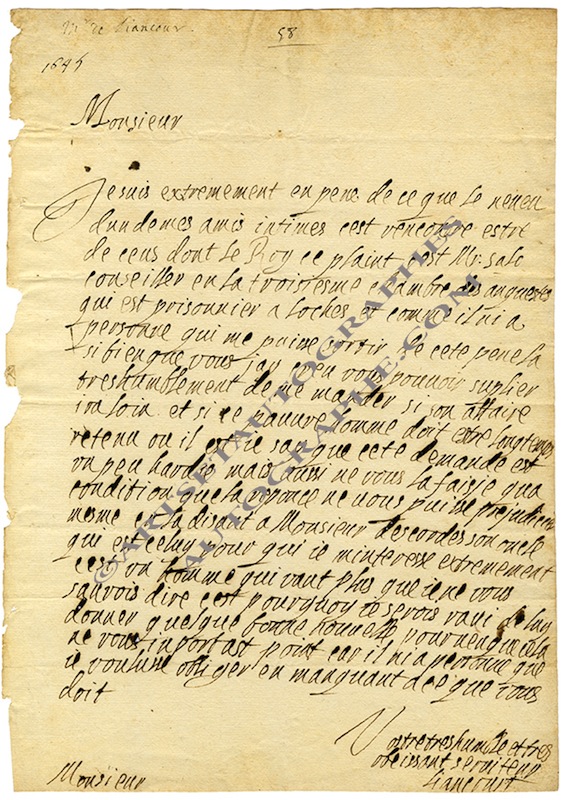 Mr de Liancour
58
1645
Monsieur
Je suis extremement en pene de ce que le neveu
dun de mes amis intimes cest rencontre estre
de ceus dont le Roy ce plaint cest Mr. salo
conseiller en la troisiesme chambre des anquestes
qui est prisonnier a loches et comme il ni a
personne qui me puisse sortir de cete pene la
si bien que vous jay creu vous pouvoir suplier
tres humblement de me mander si son affaire
ira loin et si ce pauvre homme doit estre longtemps
retenu ou il est ie say que cete demande est
un peu hardie mais aussi ne vous la faisje qua
condition que la reponce ne vous puisse prejudicier
mesme en la disant a Monsieur descordes son oncle
qui est celuy pour qui ie minteresse extremement
cest un homme qui vaut plus que ie ne vous
saurois dire cest pourquoy ie serois ravi de luy
donner quelque bonne nouvelle pourveu que cela
ne vous inportast point car il ni a personne que
ie voulusse obliger en manquant a ce que vous
doit
Vostre tres humble et tres
obeissant serviteur
Liancourt
Monsieur
©ARTSETAUTOGRAPHES
AUTOGRAPHE.COM